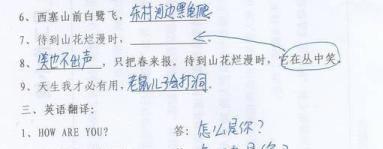 6、西塞山前白鹭飞，东村河边黑龟爬
7、待到山花烂漫时，
8、笑也不出声，只把春来报。待到山花烂漫时，它在丛中笑。
9、天生我才必有用，老鼠儿子会打洞.
三、英语翻译：
1、HOW ARE YOU? 答：怎么是你？